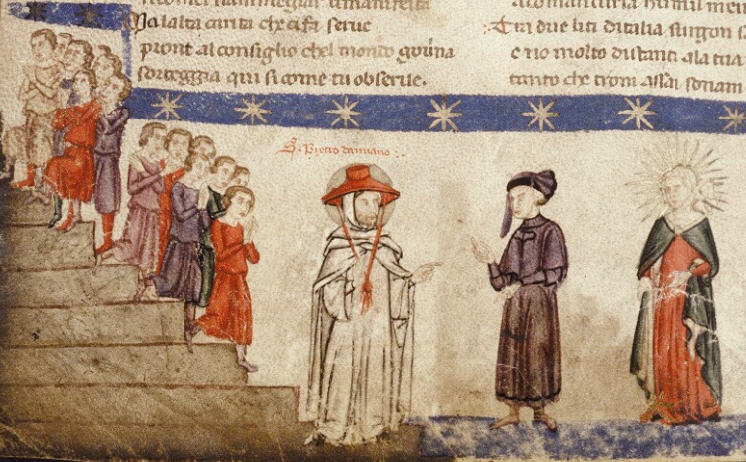 timanifesta
Ma lalta carita che cifa serue
pront al consiglio chel mondo gouna
sorteggia qui si come tu obserue.
Tra due liti ditalia surgon s
e no molto distanti ala tua
tanto che tron assai sonam
S. Pietro damiano